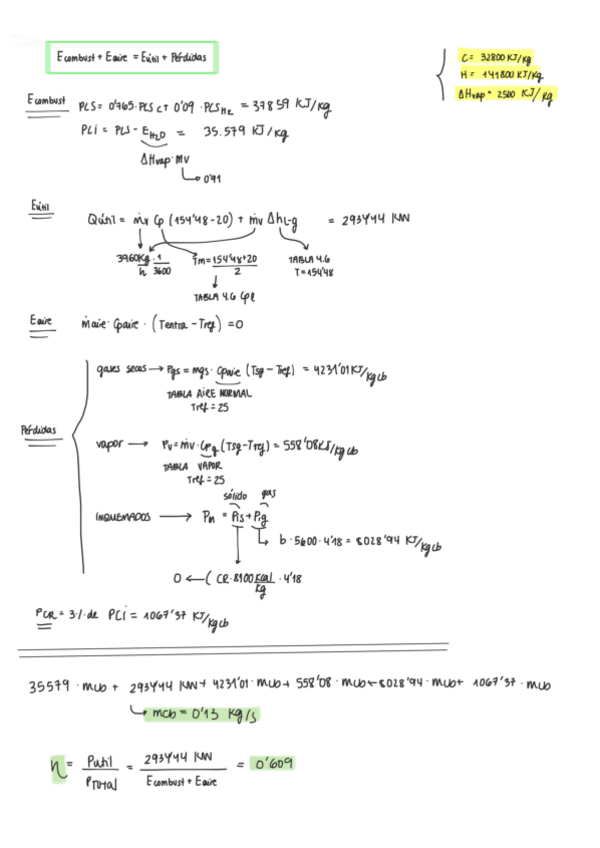 Ecombust + Eaire = Eútil + Pérdidas
C = 32800 KJ/kg
H = 141800 KJ/kg
ΔHvap = 2500 KJ/kg
Ecombust
PCS = 0'965 · PCS C + 0'09 · PCS H2 = 37859 KJ/kg
PCi = PCS - EH2O = 35.579 KJ/kg
ΔHvap · mv
0'91
Eútil
Qútil = ṁv Cp (154'48-20) + ṁv ΔhL-g = 2937'44 KW
3960 kg/h · 1/3600
Tm = 154'48+20/2
TABLA 4.6
T = 154'48
TABLA 4.6 Cpl
Eaire
ṁaire · Cpaire · (Tentra - Tref) = 0
Pérdidas
gases secos → Pgs = mgs · Cpaire (Tsg - Tref) = 4231'01 KJ/kgcb
TABLA AIRE NORMAL
Tref = 25
vapor → Pv = ṁv · Cpg (Tsg - Tref) = 558'08 KJ/kgcb
TABLA VAPOR
Tref = 25
sólido gas
INQUEMADOS → Pin = Pis + Pig
b · 5600 · 4'18 = 8028'94 KJ/kgcb
0 ← ( CR · 8100 kcal/kg · 4'18
PCR = 3% de PCi = 1067'37 KJ/kgcb
35579 · mcb + 2937'44 KW + 4231'01 · mcb + 558'08 · mcb + 8028'94 · mcb + 1067'37 · mcb
mcb = 0'13 kg/s
η = Pútil/PTotal = 2937'44 KW/Ecombust + Eaire = 0'609